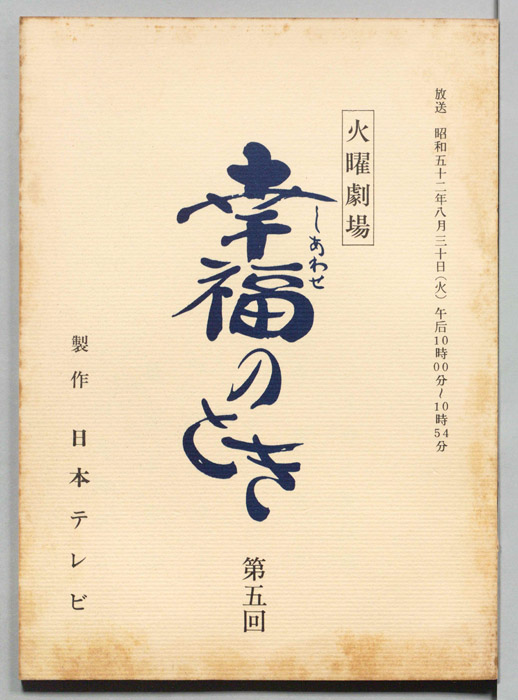 放送　昭和五十二年八月三十日（火）午后10時00分〜10時54分
火曜劇場
しあわせ
幸福のとき
第五回
製作　日本テレビ